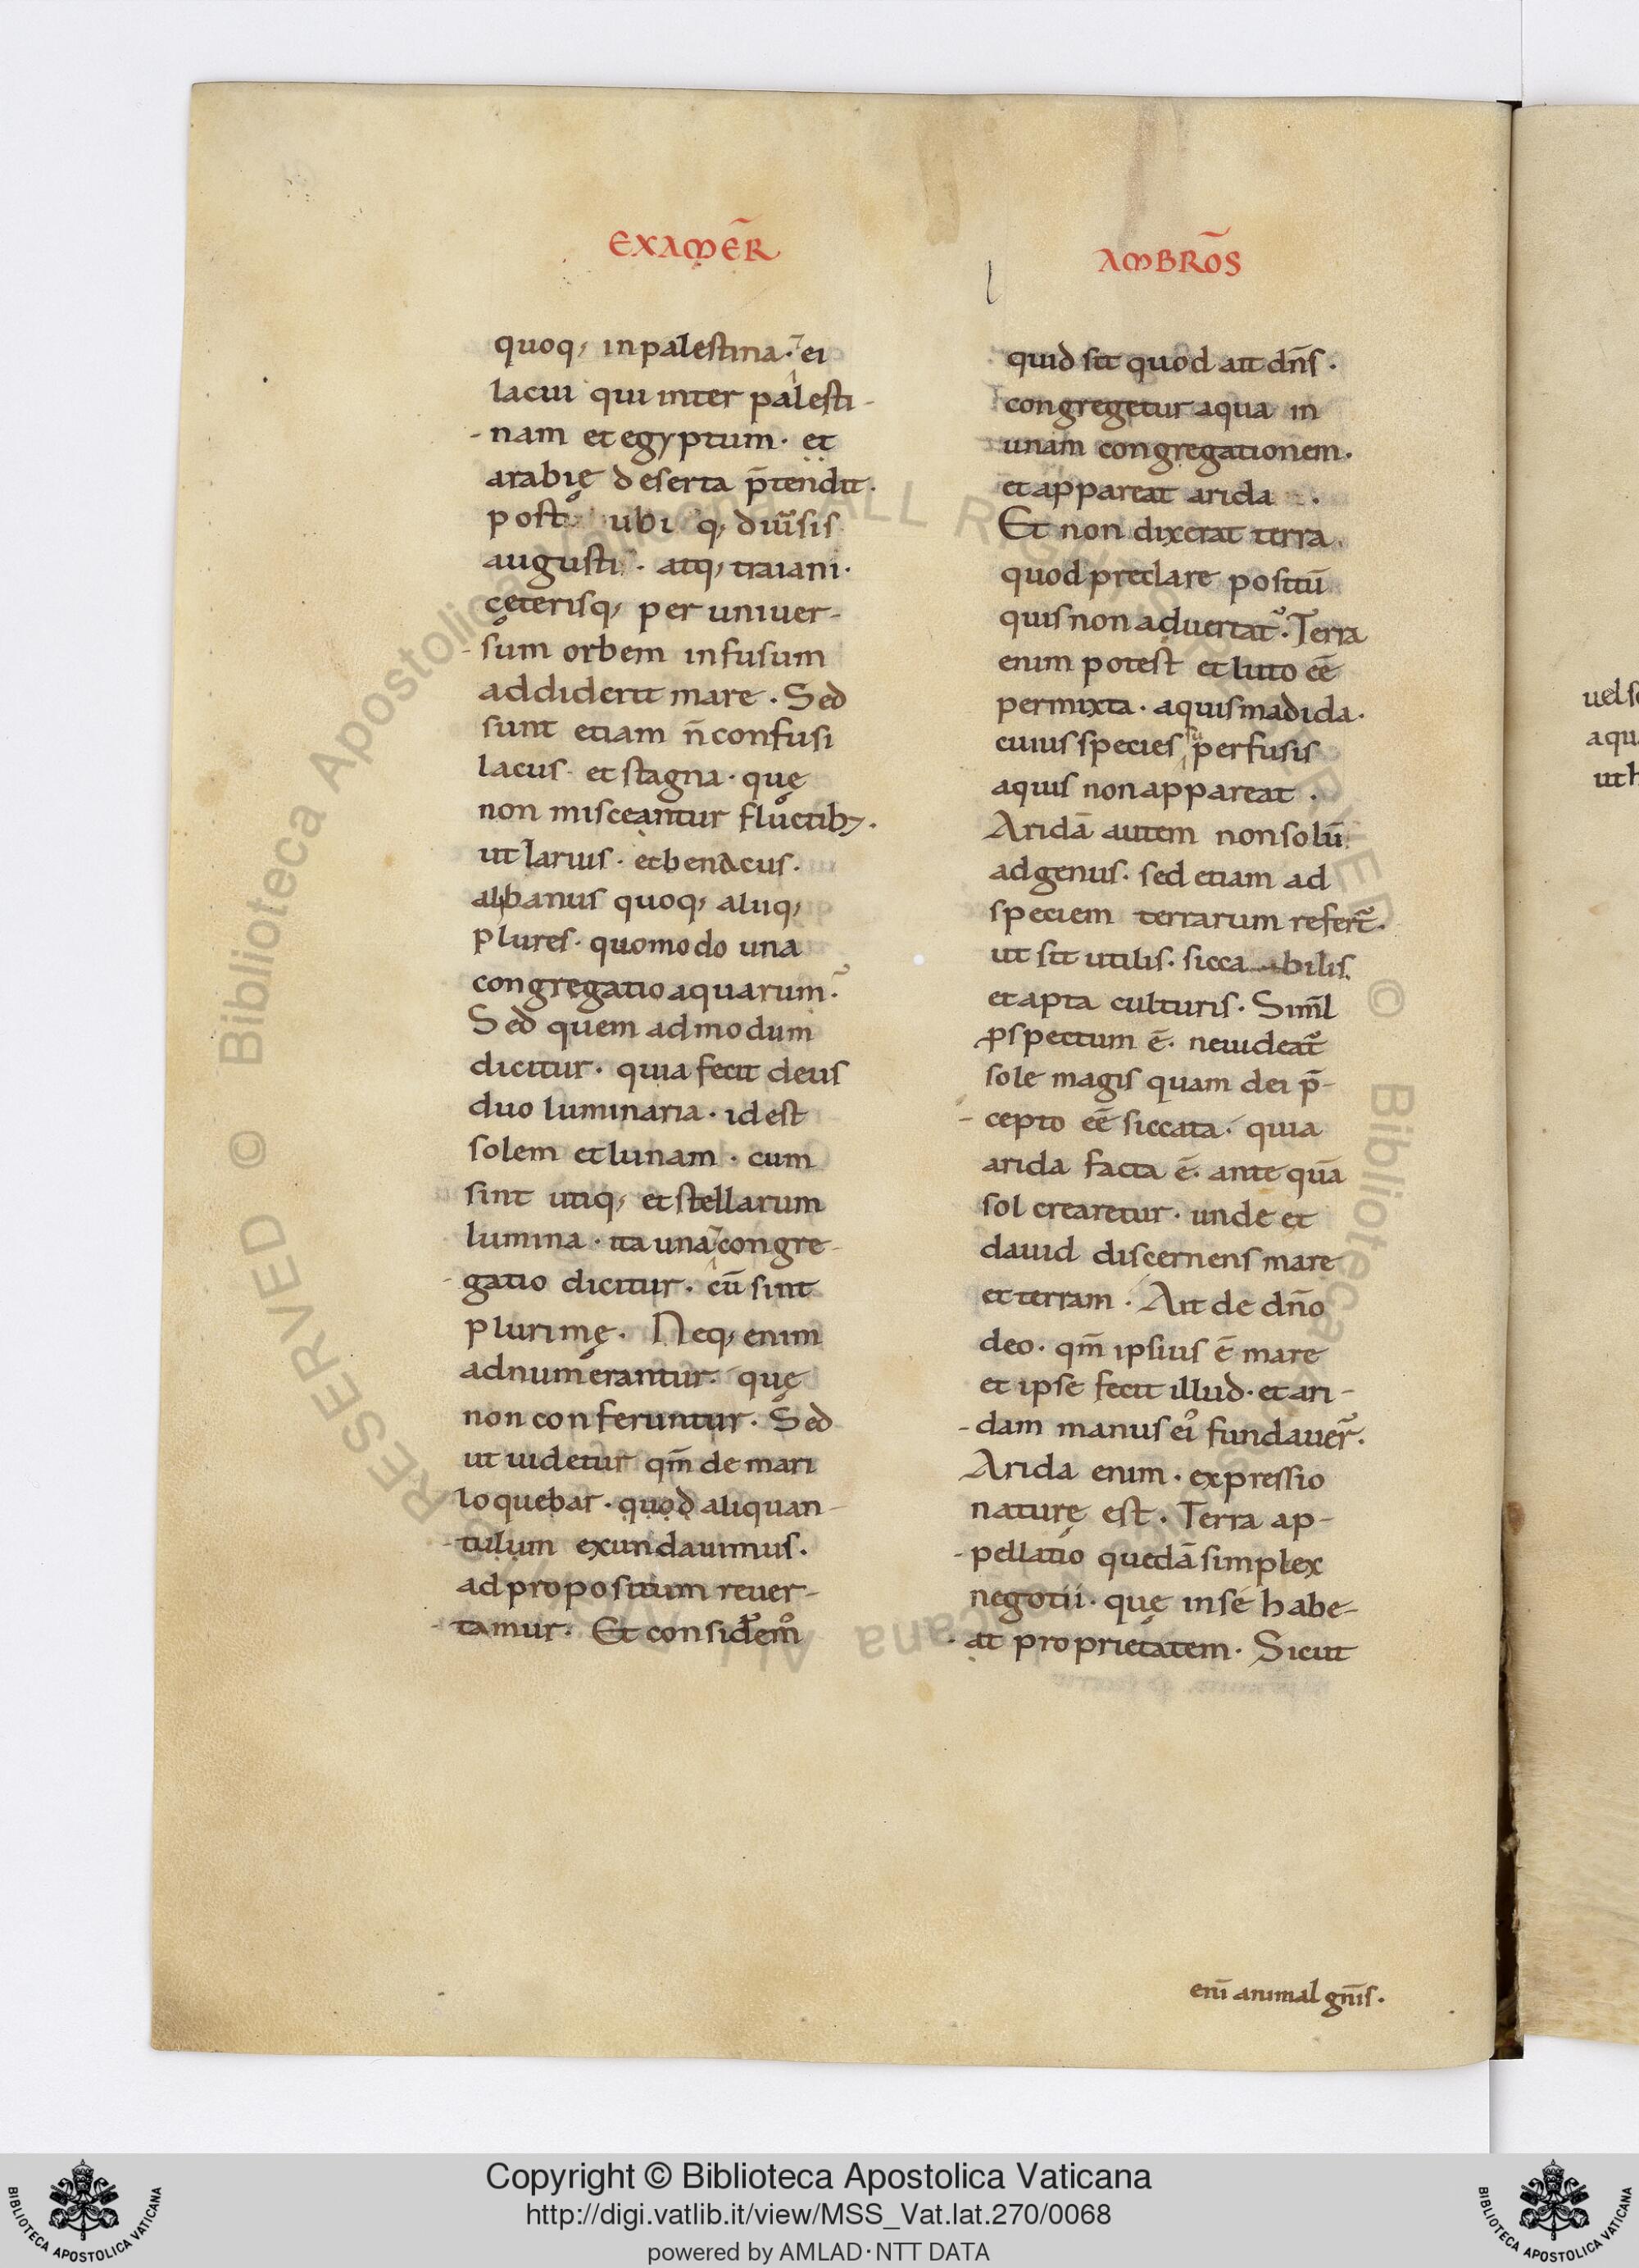 EXAM̅ER
quoq; inpalestina · ⁊ ei
lacui qui inter palesti-
-nam et egyptum · et
arabię deserta p̄tendit ·
post ubi q; diu̅sis
augusti · atq; traiani ·
ceterisq; per uniuer-
-sum orbem infusum
addiderit mare · Sed
sunt etiam n̄ confusi
lacus · et stagna · quę
non misceantur fluctib; ·
ut larius · et benacus ·
albanus quoq; aliiq;
plures · quomodo una
congregatio aquarum ·
Sed quem admodum
dicitur · quia fecit deus
duo luminaria · id est
solem et lunam · cum
sint utiq; et stellarum
lumina · ita una ⁊ congre-
-gatio dicitur · cū sint
plurimę · Neq; enim
adnumerantur · quę
non conferuntur · Sed
ut uidetur qm̄ de mari
loquebar · quod aliquan-
-tulum exundauimus ·
ad propositum reuer-
-tamur · Et considem̉
AMBRO̅S
quid sit quod ait dn̄s ·
congregetur aqua in
unam congregationem ·
et appareat arida ·
Et non dixerat terra
quod preclare positū
quis non aduertat̉ · Terra
enim potest et luto eē
permixta · aquis madida ·
cuius species su perfusis
aquis non appareat ·
Aridā autem non solū
ad genus · sed etiam ad
speciem terrarum refert̉ ·
ut sit utilis · sicca bilis
et apta culturis · Siml̄
ꝓspectum ē · ne uideat̉
sole magis quam dei p̄-
-cepto eē siccata · quia
arida facta ē · ante quā
sol crearetur · unde et
dauid discernens mare
et terram · Ait de dn̄o
deo · qm̄ ipsius ē mare
et ipse fecit illud · et ari-
-dam manus eỉ fundauer̄ ·
Arida enim · expressio
naturę est · Terra ap-
-pellatio quedā simplex
negotii · quę in se habe-
at proprietatem · Sicut
eni̅ animal gn̄is ·
uel s
aqu
ut h
Copyright © Biblioteca Apostolica Vaticana
http://digi.vatlib.it/view/MSS_Vat.lat.270/0068
powered by AMLAD·NTT DATA
BIBLIOTECA APOSTOLICA VATICANA
BIBLIOTECA APOSTOLICA VATICANA